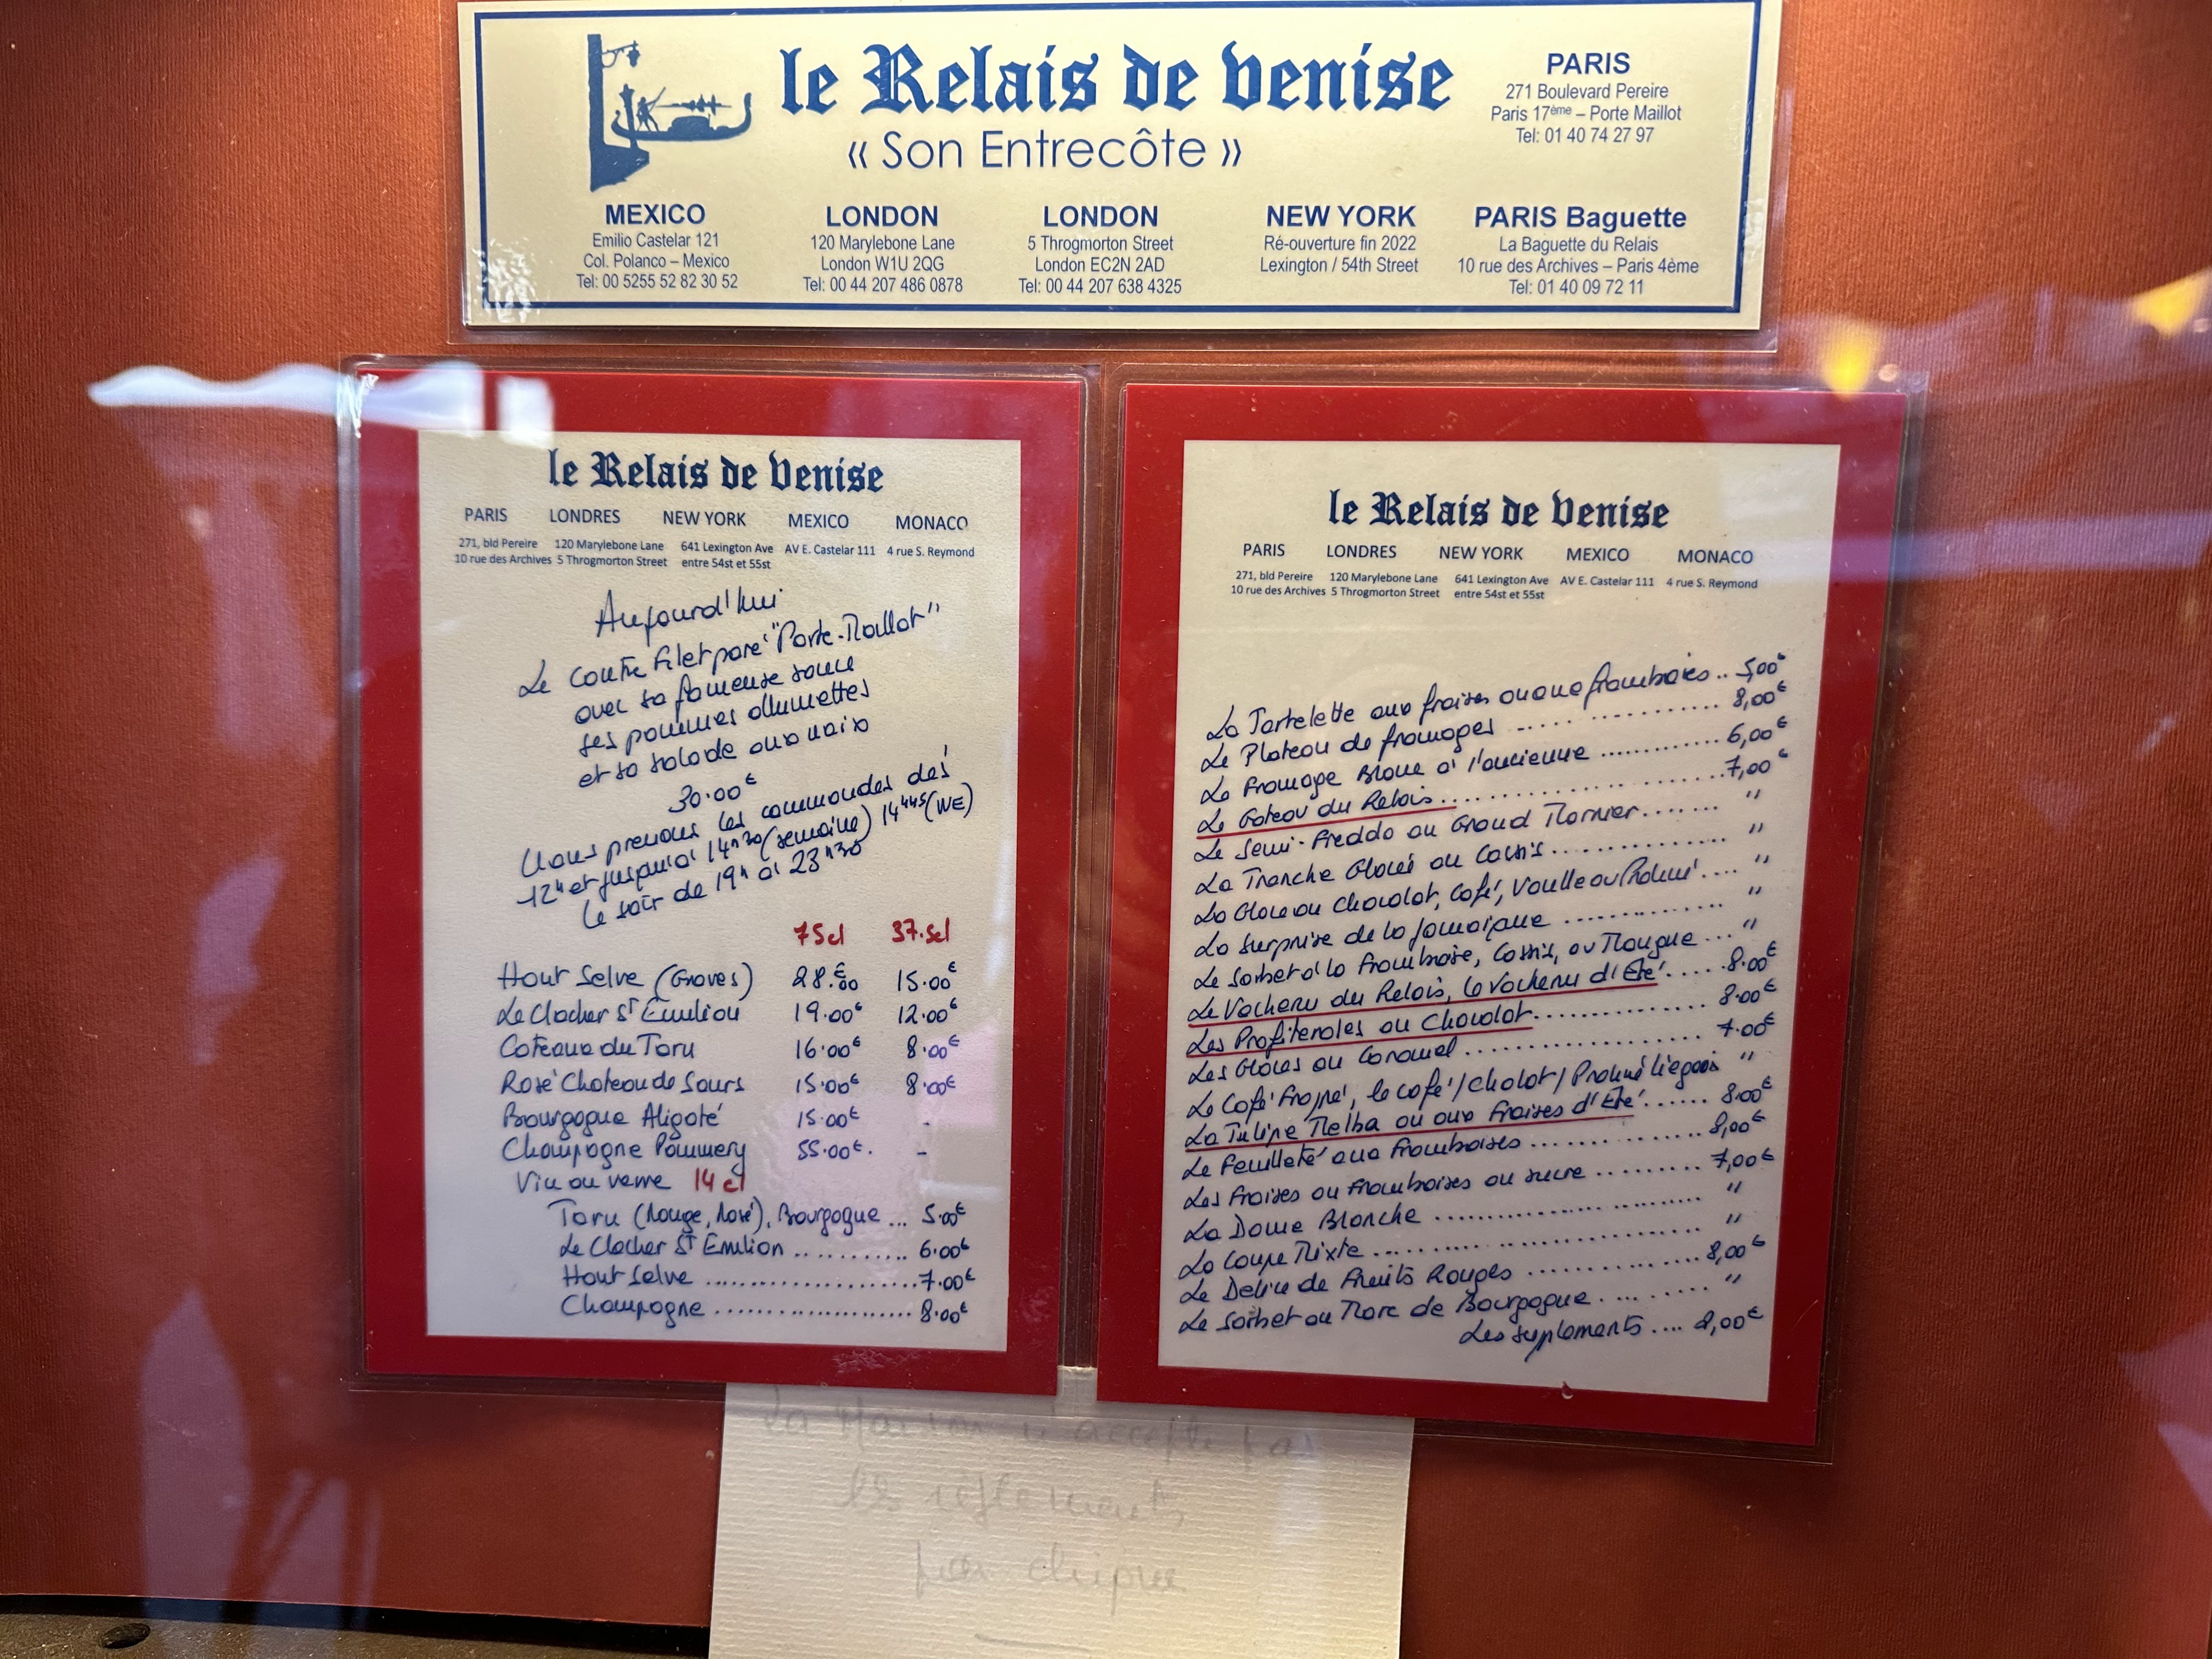 le Relais de Venise
« Son Entrecôte »
PARIS
271 Boulevard Pereire
Paris 17ème – Porte Maillot
Tel: 01 40 74 27 97
MEXICO
Emilio Castelar 121
Col. Polanco – Mexico
Tel: 00 5255 52 82 30 52
LONDON
120 Marylebone Lane
London W1U 2QG
Tel: 00 44 207 486 0878
LONDON
5 Throgmorton Street
London EC2N 2AD
Tel: 00 44 207 638 4325
NEW YORK
Ré-ouverture fin 2022
Lexington / 54th Street
PARIS Baguette
La Baguette du Relais
10 rue des Archives – Paris 4ème
Tel: 01 40 09 72 11
le Relais de Venise
PARIS LONDRES NEW YORK MEXICO MONACO
271, bld Pereire 120 Marylebone Lane 641 Lexington Ave AV E. Castelar 111 4 rue S. Reymond
10 rue des Archives 5 Throgmorton Street entre 54st et 55st
Aujourd'hui
Le Contre Filet paré "Porte-Maillot"
avec sa fameuse sauce
ses pommes allumettes
et sa salade aux noix
30.00€
Nous prenons les commandes dès
12h et jusqu'à 14h30 (semaine) 14h45 (WE)
le soir de 19h à 23h30
75cl 37.5cl
Haut Selve (Graves) 28.00€ 15.00€
Le Clocher St Émilion 19.00€ 12.00€
Coteaux du Tarn 16.00€ 8.00€
Rosé Chateau de Sours 15.00€ 8.00€
Bourgogne Aligoté 15.00€ -
Champagne Pommery 55.00€. -
Vin au verre 14 cl
Tarn (Rouge, Rosé), Bourgogne ... 5.00€
Le Clocher St Émilion ........... 6.00€
Haut Selve ..................... 7.00€
Champagne ................... 8.00€
le Relais de Venise
PARIS LONDRES NEW YORK MEXICO MONACO
271, bld Pereire 120 Marylebone Lane 641 Lexington Ave AV E. Castelar 111 4 rue S. Reymond
10 rue des Archives 5 Throgmorton Street entre 54st et 55st
La Tartelette aux fraises ou aux framboises .. 5,00€
Le Plateau de fromages ................ 8,00€
Le Fromage Blanc à l'ancienne ............ 6,00€
Le Gateau du Relais ..................... 7,00€
Le Semi-Freddo au Grand Marnier ....... "
La Tranche Glacée au Cassis .............. "
La Glace au Chocolat, Café, Vanille ou Praliné .... "
La Surprise de la Jamaïque .............. "
Le Sorbet à la Framboise, Cassis, ou Mangue ... "
Le Vacherin du Relais, le Vacherin d'Eté ..... 8.00€
Les Profiteroles au Chocolat ............... 8.00€
Les Glaces au Caramel .................. 7.00€
Le Café Frappé, le café/Cholot/Praliné liégeois "
La Tulipe Melba ou aux Fraises d'Eté ...... 8.00€
Le Feuilleté aux Framboises ............... 8,00€
Les Fraises ou Framboises au sucre ......... 7,00€
La Dame Blanche ........................ "
La Coupe Mixte ......................... "
Le Délice de Fruits Rouges ............... 8,00€
Le Sorbet au Marc de Bourgogne .......... "
Les supléments ....
La Maison n'accepte pas
les règlements
par chèque